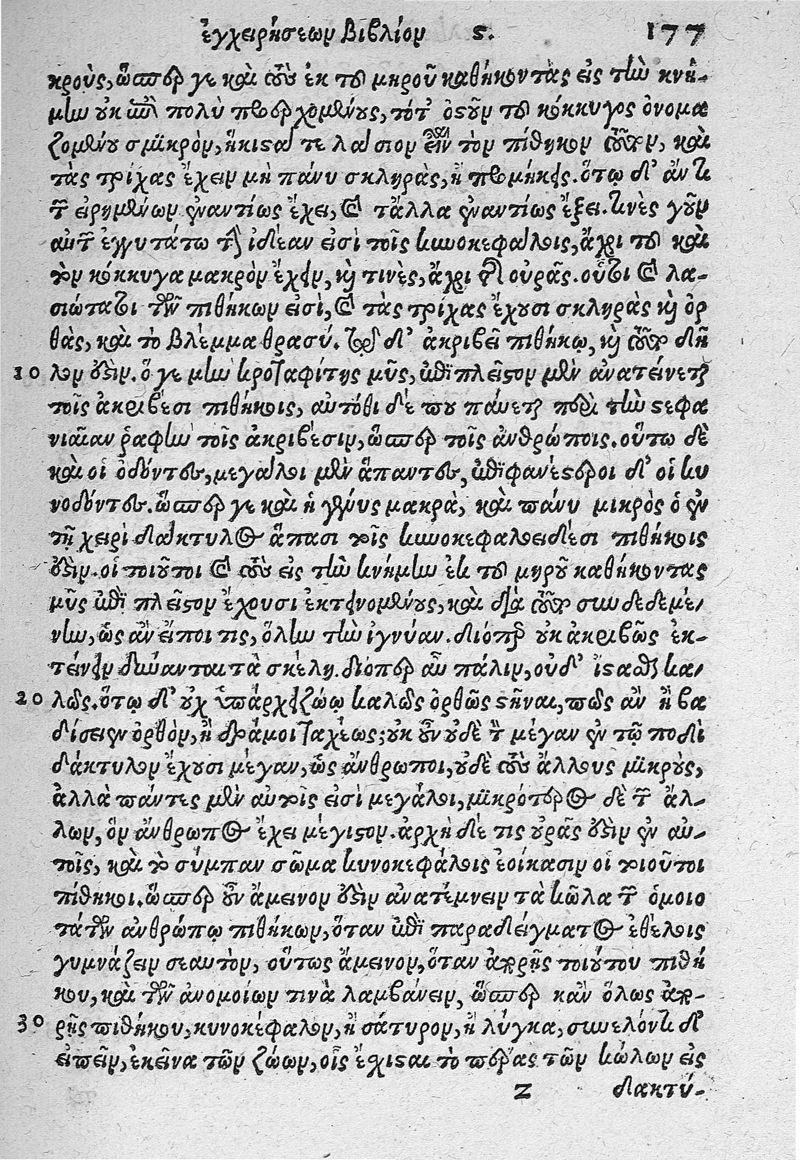 ἐγχειρήσεων Βιβλίον ϛ. 177
κροὺς, ὥσπερ γε καὶ τοὺς ἐκ τοῦ μηροῦ καθήκοντας εἰς τὴν κνή-
μην οὐκ ἐπὶ πολὺ προερχομένους, τότ' ὀστοῦν τοῦ κόκκυγος ὀνομα
ζομένου σμικρὸν, ἥκιστά τε λάσιον εἶναι τὸν πίθηκον τοῦτον, καὶ
τὰς τρίχας ἔχειν μὴ πάνυ σκληρὰς, ἢ προμήκεις. ὅτῳ δ' ἄν τι
τῶν εἰρημένων ἐναντίως ἔχει, καὶ τἄλλα ἐναντίως ἕξει. τινὲς γοῦν
αὐτῶν ἐγγυτάτω τὴν ἰδέαν εἰσὶ τοῖς κυνοκεφάλοις, ἄχρι τοῦ καὶ
τὸν κόκκυγα μακρὸν ἔχειν, καὶ τινὲς, ἄχρι τῆς οὐρᾶς. οὗτοι καὶ λα-
σιώτατοι τῶν πιθήκων εἰσὶ, καὶ τὰς τρίχας ἔχουσι σκληρὰς καὶ ὀρ
θὰς, καὶ τὸ βλέμμα θρασύ. τῷ δ' ἀκριβεῖ πιθήκῳ, καὶ τοῦτο δει
10 λόν ἐστιν. ὅ γε μὴν κροταφίτης μῦς, ἐπὶ πλεῖστον μὲν ἀνατείνεται
τοῖς ἀκριβέσι πιθήκοις, αὐτόθι δέ που παύεται παρὰ τὴν στεφα
νιαίαν ῥαφὴν τοῖς ἀκριβέσιν, ὥσπερ τοῖς ἀνθρώποις. οὕτω δὲ
καὶ οἱ ὀδόντες, μεγάλοι μὲν ἅπαντες, ἐπιφανέστεροι δ' οἱ κυ
νόδοντες. ὥσπερ γε καὶ ἡ γένυς μακρὰ, καὶ πάνυ μικρὸς ὁ ἐν
τῇ χειρὶ δάκτυλος ἅπασι τοῖς κυνοκεφαλοειδέσι πιθήκοις
ἐστιν. οἱ τοιοῦτοι καὶ τοὺς εἰς τὴν κνήμην ἐκ τοῦ μηροῦ καθήκοντας
μῦς ἐπὶ πλεῖστον ἔχουσι ἐκτεινομένους, καὶ διὰ τοῦτο συνδεδεμέ-
νην, ὡς ἂν εἴποι τις, ὅλην τὴν ἰγνύαν. διόπερ οὐκ ἀκριβῶς ἐκ-
τείνειν δύνανται τὰ σκέλη. διόπερ αὖ πάλιν, οὐδ' ἵσταται κα-
20 λῶς. ὅτῳ δ' οὐχ ὑπάρχει ζώῳ καλῶς ὀρθῶς στῆναι, πῶς ἂν ἢ βα
δίσειεν ὀρθὸν, ἢ δράμοι ταχέως; οὐκ οὖν οὐδὲ τὸν μέγαν ἐν τῷ ποδὶ
δάκτυλον ἔχουσι μέγαν, ὡς ἄνθρωποι, οὐδὲ τοὺς ἄλλους μικροὺς,
ἀλλὰ πάντες μὲν αὐτοῖς εἰσὶ μεγάλοι, μικρότερος δὲ τῶν ἄλ-
λων, ὃν ἄνθρωπος ἔχει μέγιστον. ἀρχὴ δέ τις οὐρᾶς ἐστιν ἐν αὐ-
τοῖς, καὶ τὸ σύμπαν σῶμα κυνοκεφάλοις ἐοίκασιν οἱ τοιοῦτοι
πίθηκοι. ὥσπερ οὖν ἄμεινον ἐστιν ἀνατέμνειν τὰ κῶλα τῶν ὁμοιο
τάτων ἀνθρώπῳ πιθήκων, ὅταν ἐπὶ παραδείγματος ἐθέλοις
γυμνάζειν σεαυτὸν, οὕτως ἄμεινον, ὅταν ἀπορῇς τοιούτου πιθή
κου, καὶ τῶν ἀνομοίων τινὰ λαμβάνειν, ὥσπερ κἂν ὅλως ἀπο-
30 ρῇς πιθήκου, κυνοκέφαλον, ἢ σάτυρον, ἢ λύγκα, συνελόντι δ'
εἰπεῖν, ἐκεῖνα τῶν ζώων, οἷς ἔχισται τὸ πέρας τῶν κώλων εἰς
Z δακτύ-